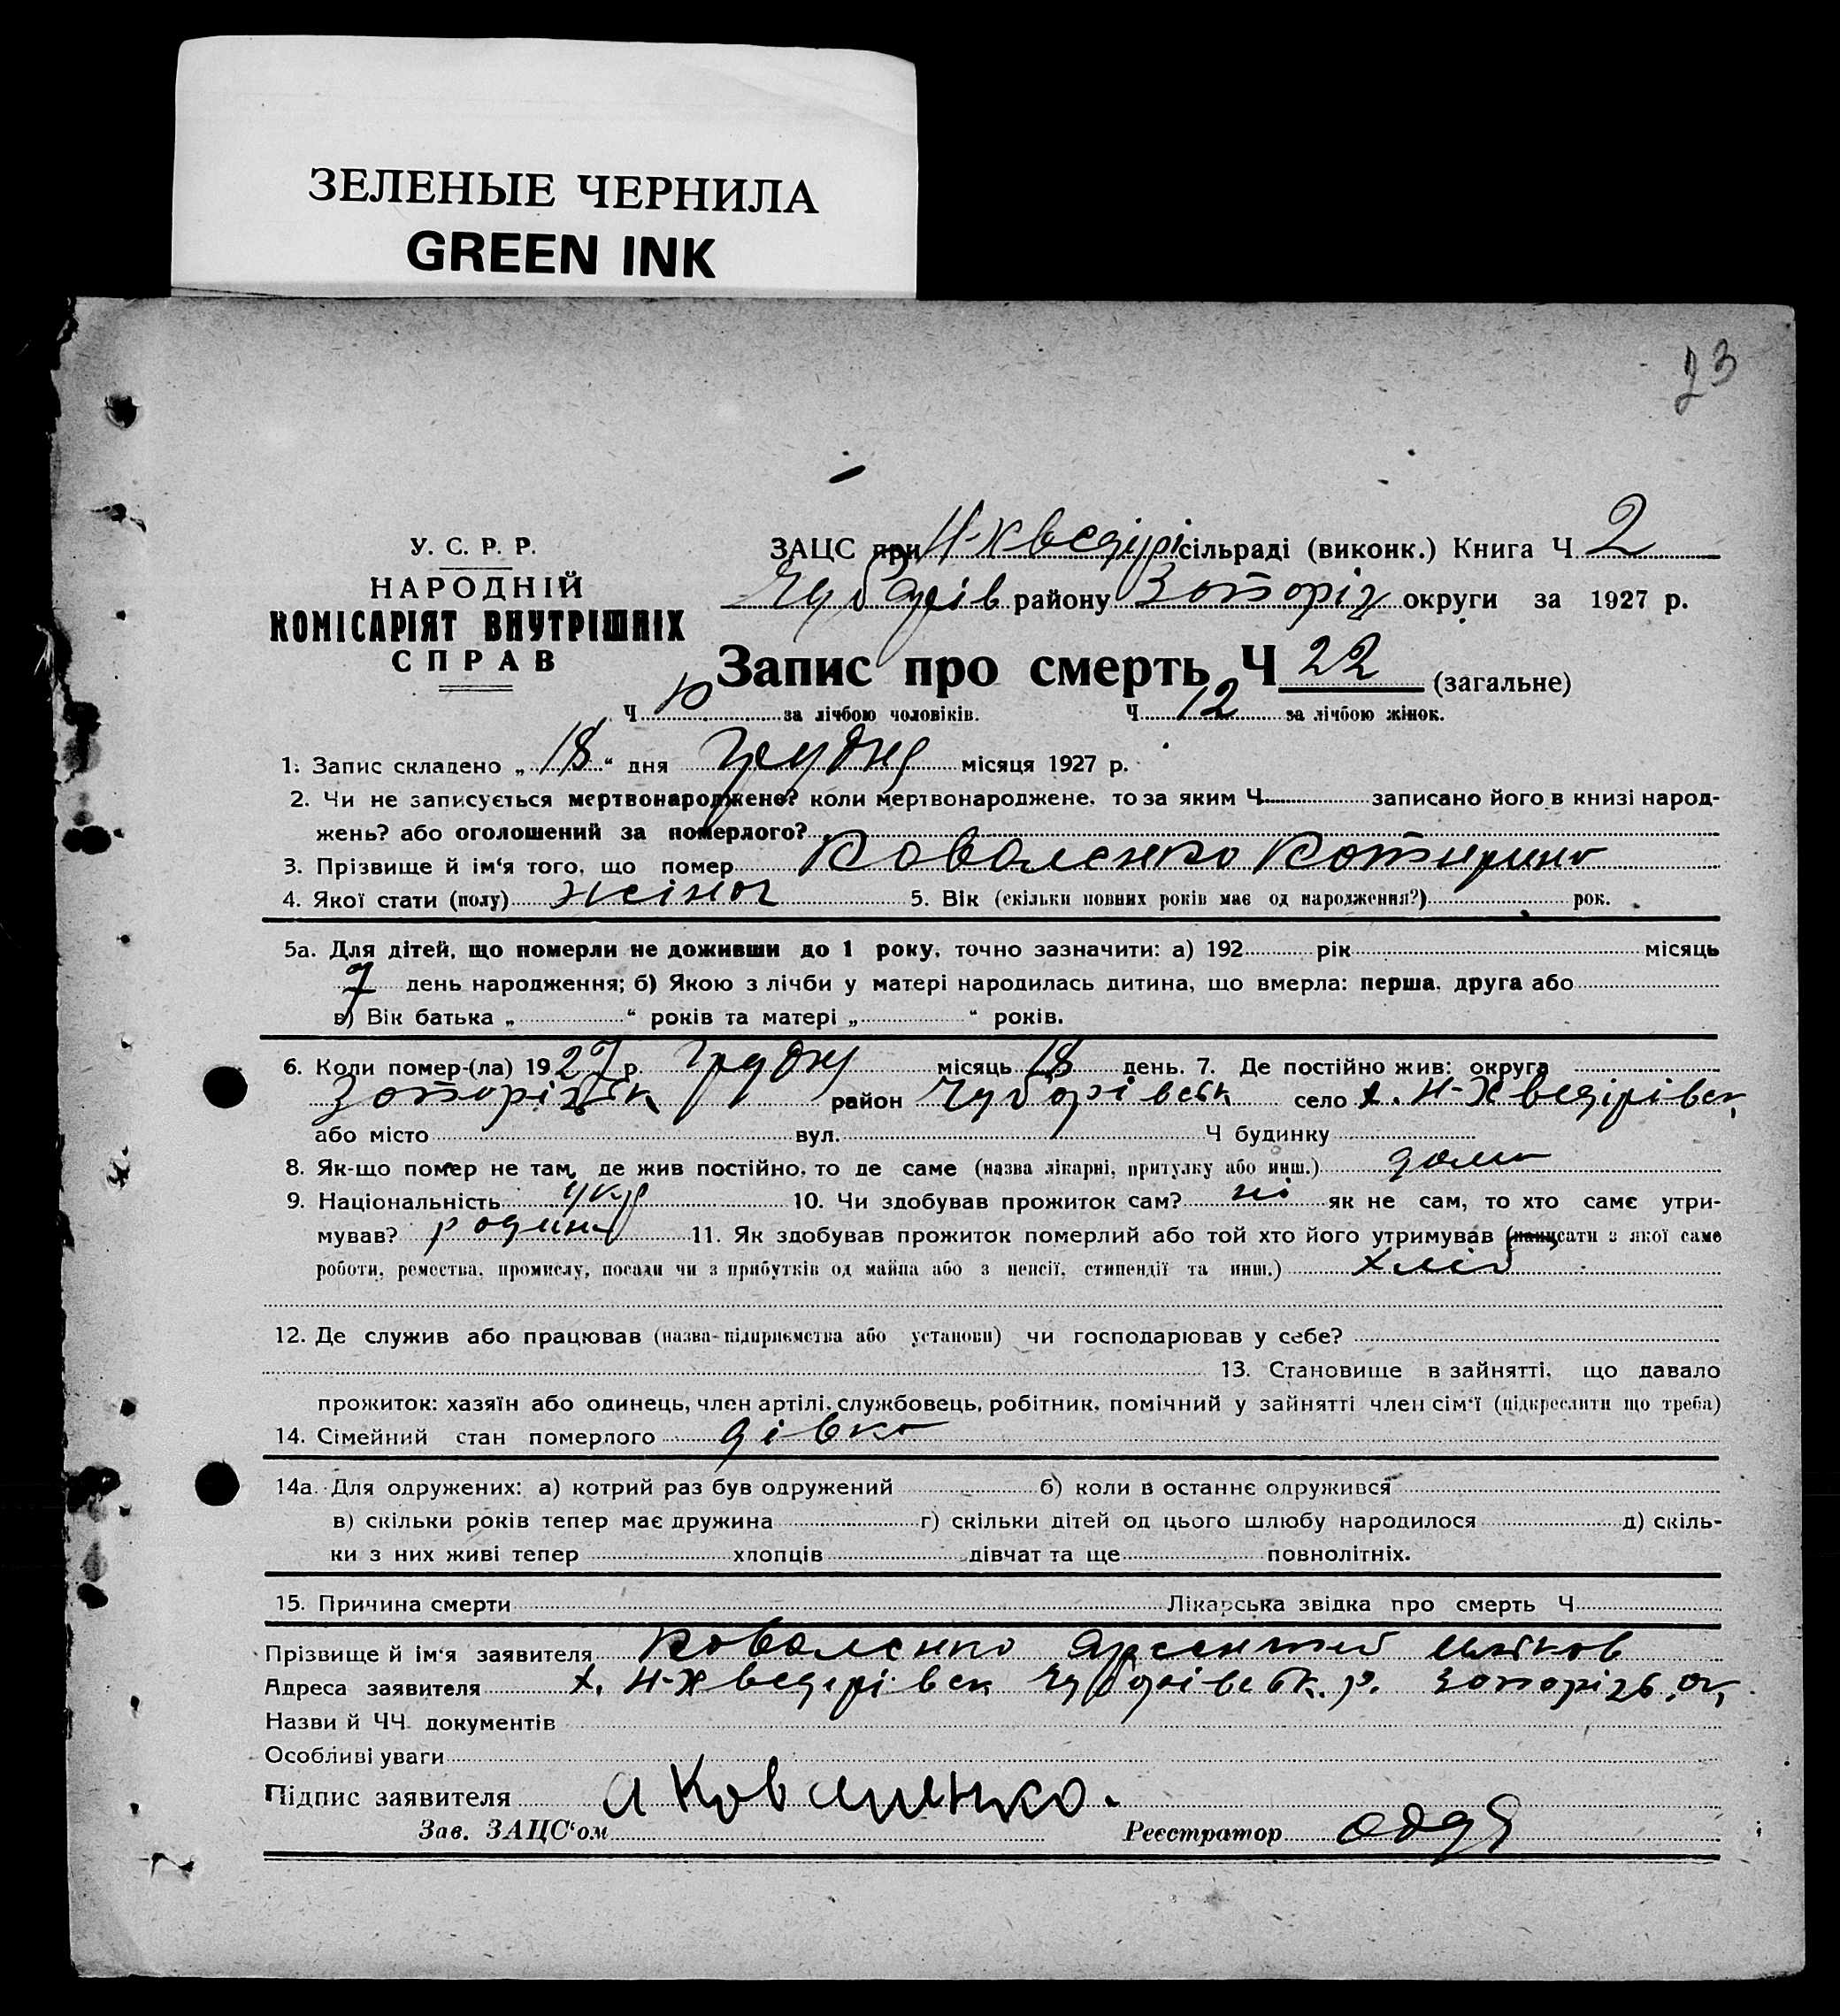 ЗЕЛЕНЫЕ ЧЕРНИЛА
GREEN INK
23
У. С. Р. Р.
НАРОДНІЙ
КОМІСАРІЯТ ВНУТРІШНІХ
СПРАВ
ЗАЦС при Н-Хведірі сільраді (виконк.) Книга Ч 2
Чубарів району Запоріз округи за 1927 р.
Запис про смерть Ч 22 (загальне)
Ч 10 за лічбою чоловіків. Ч 12 за лічбою жінок.
1. Запис складено „ 18 “ дня грудня місяця 1927 р.
2. Чи не записується мертвонароджене? коли мертвонароджене, то за яким Ч. записано його в книзі народ-
жень? або оголошений за померлого?
3. Прізвище й ім‘я того, що помер Коваленко Катирина
4. Якої стати (полу) жіноч 5. Вік (скільки повних років має од народження?) рок.
5а. Для дітей, що померли не доживши до 1 року, точно зазначити: а) 192 рік місяць
7 день народження; б) Якою з лічби у матері народилась дитина, що вмерла: перша, друга або
в) Вік батька „ “ років та матері „ “ років.
6. Коли помер-(ла) 1927 р. грудня місяць 18 день. 7. Де постійно жив: округа
Запорізьк район Чубарівськ село х. Н-Хведірівськ
або місто вул. Ч будинку
8. Як-що помер не там, де жив постійно, то де саме (назва лікарні, притулку або инш.) дома
9. Національність укр 10. Чи здобував прожиток сам? ні як не сам, то хто саме утри-
мував? родина 11. Як здобував прожиток померлий або той хто його утримував (написати з якої саме
роботи, ремества, промислу, посади чи з прибутків од майна або з пенсії, стипендії та инш.) хліб
12. Де служив або працював (назва підприємства або установи) чи господарював у себе?
13. Становище в зайнятті, що давало
прожиток: хазяїн або одинець, член артілі, службовець, робітник, помічний у зайнятті член сім‘ї (підкреслити що треба)
14. Сімейний стан померлого дівка
14а. Для одружених: а) котрий раз був одружений б) коли в останнє одружився
в) скільки років тепер має дружина г) скільки дітей од цього шлюбу народилося д) скіль-
ки з них живі тепер хлопців дівчат та ще повнолітніх.
15. Причина смерти Лікарська звідка про смерть Ч
Прізвище й ім‘я заявителя Коваленко Арсентий
Адреса заявителя х. Н-Хведірівськ Чубарівськ. р. Запорізь. ок,
Назви й ЧЧ документів
Особливі уваги
Підпис заявителя А Коваленко.
Зав. ЗАЦС‘ом Реєстратор